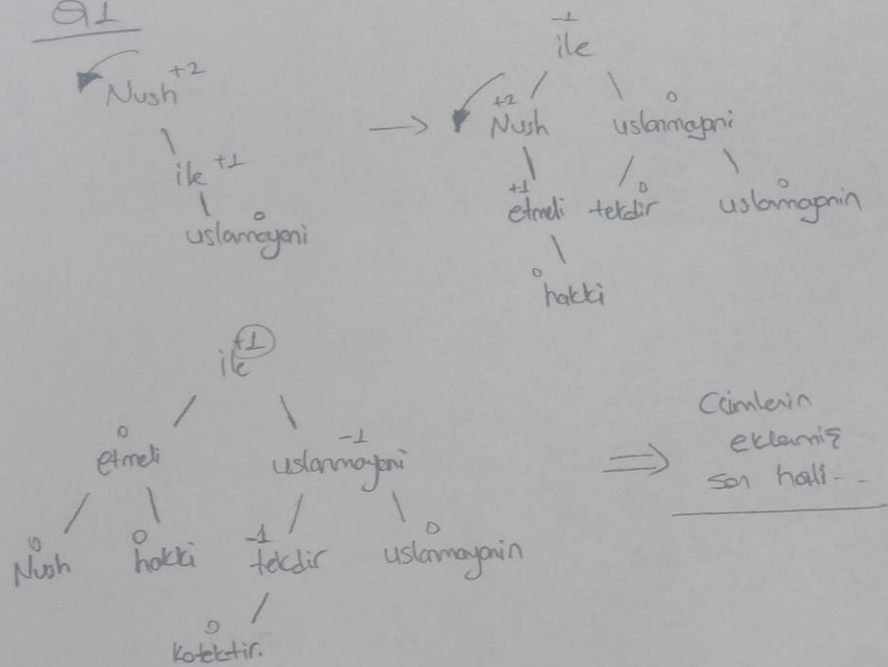 Q1
+2
Nush
ile +1
0
uslanmayani
-1
ile
+2
Nush
0
uslanmayani
+1
etmeli
0
tekdir
0
uslanmayanin
0
hakki
+1
ile
0
etmeli
-1
uslanmayani
0
Nush
0
hakki
-1
tekdir
0
uslanmayanin
0
kotektir.
Cümlenin
eklenmiş
son hali...